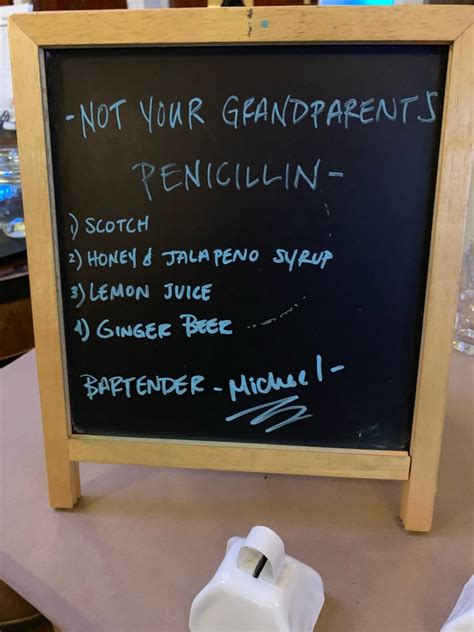 -NOT YOUR GRANDPARENTS
PENICILLIN-
1) SCOTCH
2) HONEY & JALAPENO SYRUP
3) LEMON JUICE
4) GINGER BEER
BARTENDER - Michael -